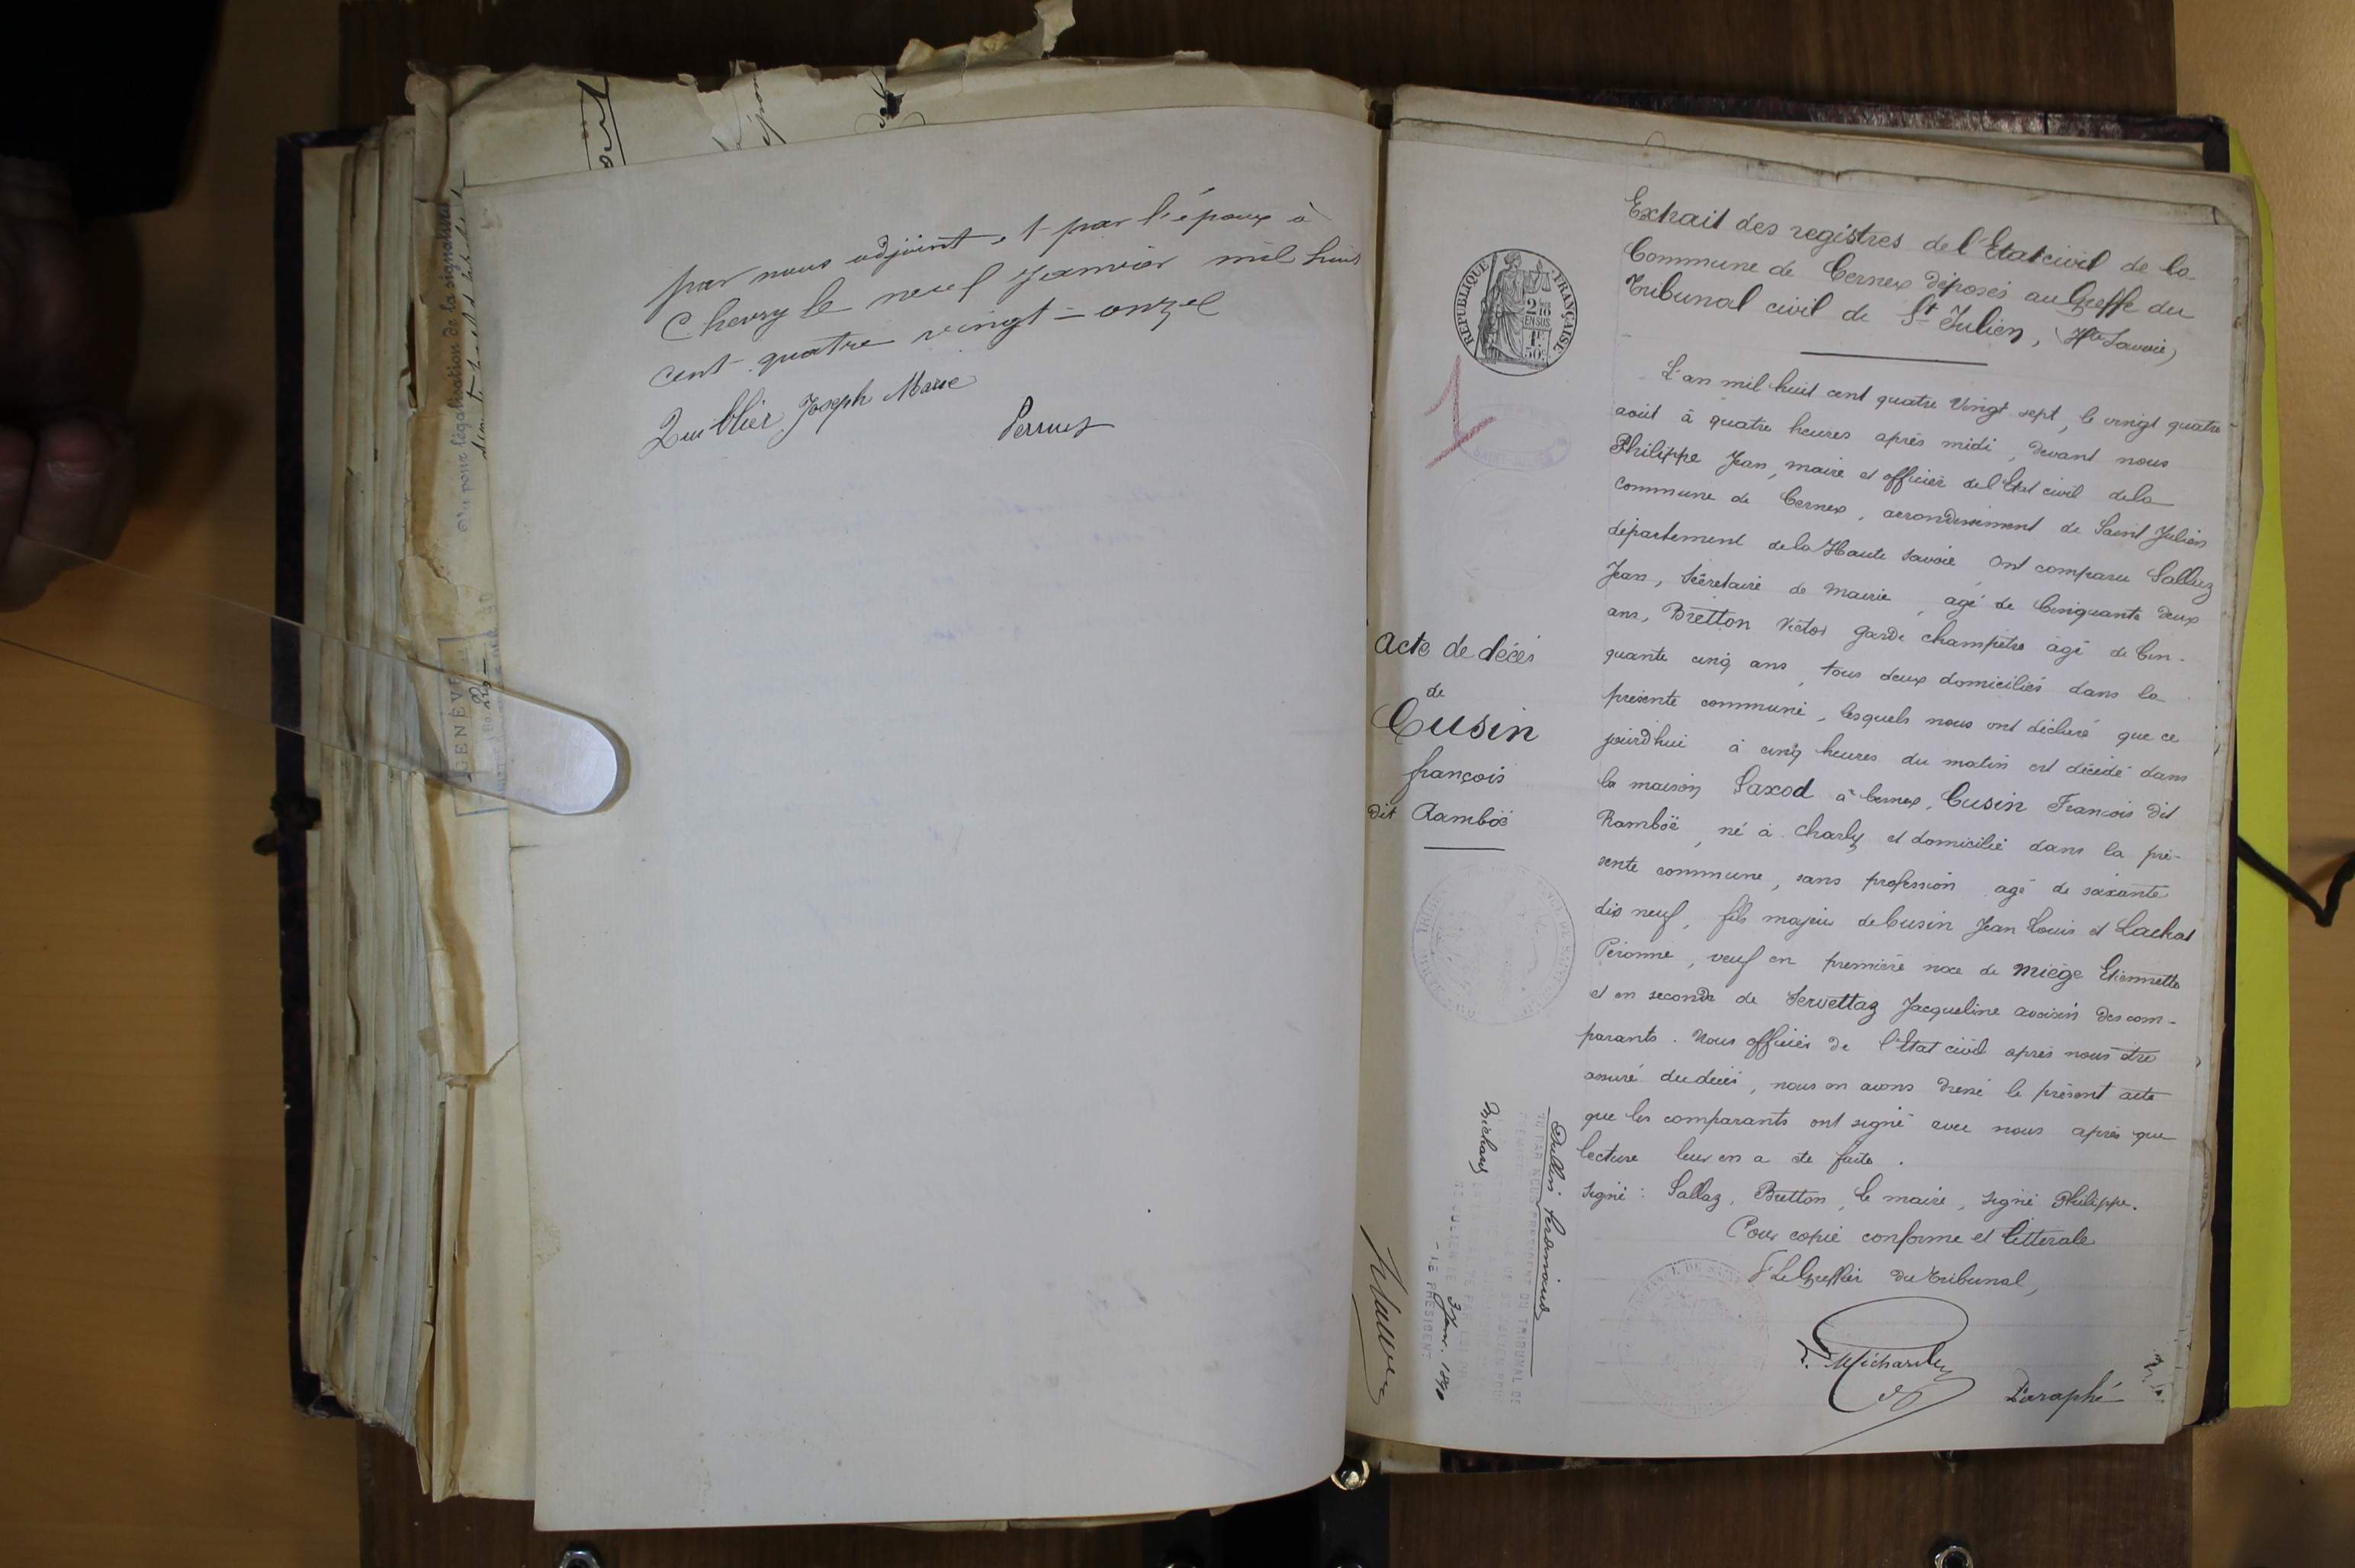 par nous adjoint et par l'époux à
Chevry le neuf Janvier mil huit
cent quatre vingt = onze
Quiblier Joseph Marie
Perruet
Vu pour légalisation de la signature
GENÈVE
Extrait des registres de l'Etat civil de la
Commune de Cernex déposés au Greffe du
Tribunal civil de St Julien, (Hte Savoie)
RÉPUBLIQUE FRANÇAISE
2/10
EN SUS
1F
50c
1
L'an mil huit cent quatre vingt sept, le vingt quatre
août à quatre heures après midi, devant nous
Philippe Jean, maire et officier de l'Etat civil de la
commune de Cernex, arrondissement de Saint Julien
département de la Haute Savoie, ont comparu Sallaz
Jean, Sécretaire de Mairie, agé de Cinquante deux
ans, Bretton Victor garde champêtre agé de Cin-
quante cinq ans, tous deux domiciliés dans la
présente commune, lesquels nous ont déclaré que ce
jourd'hui à cinq heures du matin est décédé dans
la maison Saxod à Cernex, Cusin François dit
Ramboë, né à Charly et domicilié dans la pré-
sente commune, sans profession agé de soixante
dix neuf, fils majeur de Cusin Jean Louis et Lachat
Péronne, veuf en première noce de Miège Etiennette
et en seconde de Servettaz Jacqueline avoisin des com-
parants. Nous officier de l'Etat civil après nous être
assuré du décès, nous en avons dressé le présent acte
que les comparants ont signé avec nous après que
lecture leur en a été faite.
Signé: Sallaz, Bretton, le maire, signé Philippe.
Pour copie conforme et littérale
P Le Greffier du Tribunal,
Paraphé
Acte de décès
de
Cusin
françois
dit Ramboë
PRESIDENT DU TRIBUNAL DE
3 Janv. 1890
- LE PRÉSIDENT